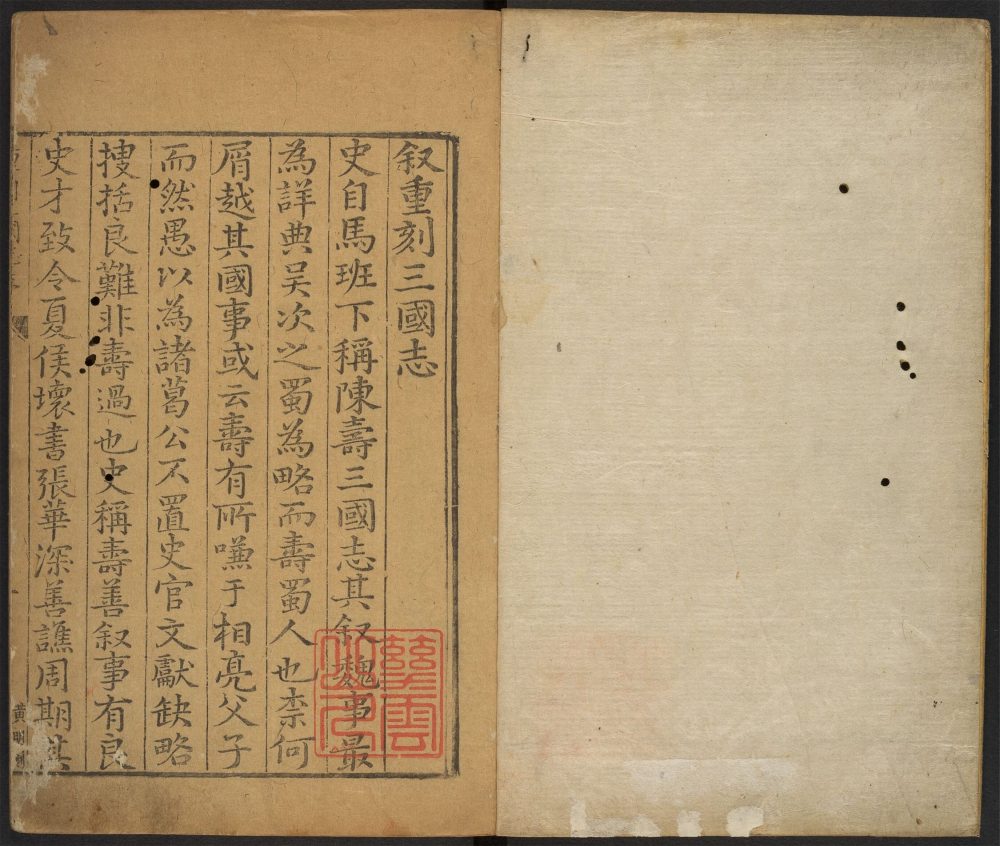 叙重刻三國志
史自馬班下稱陳壽三國志其叙魏事最
為詳典吴次之蜀為略而壽蜀人也柰何
屑越其國事或云壽有所嗛于相亮父子
而然愚以為諸葛公不置史官文獻缺略
捜括良難非壽過也史稱壽善叙事有良
史才致令夏侯壞書張華深善譙周期其
黄明